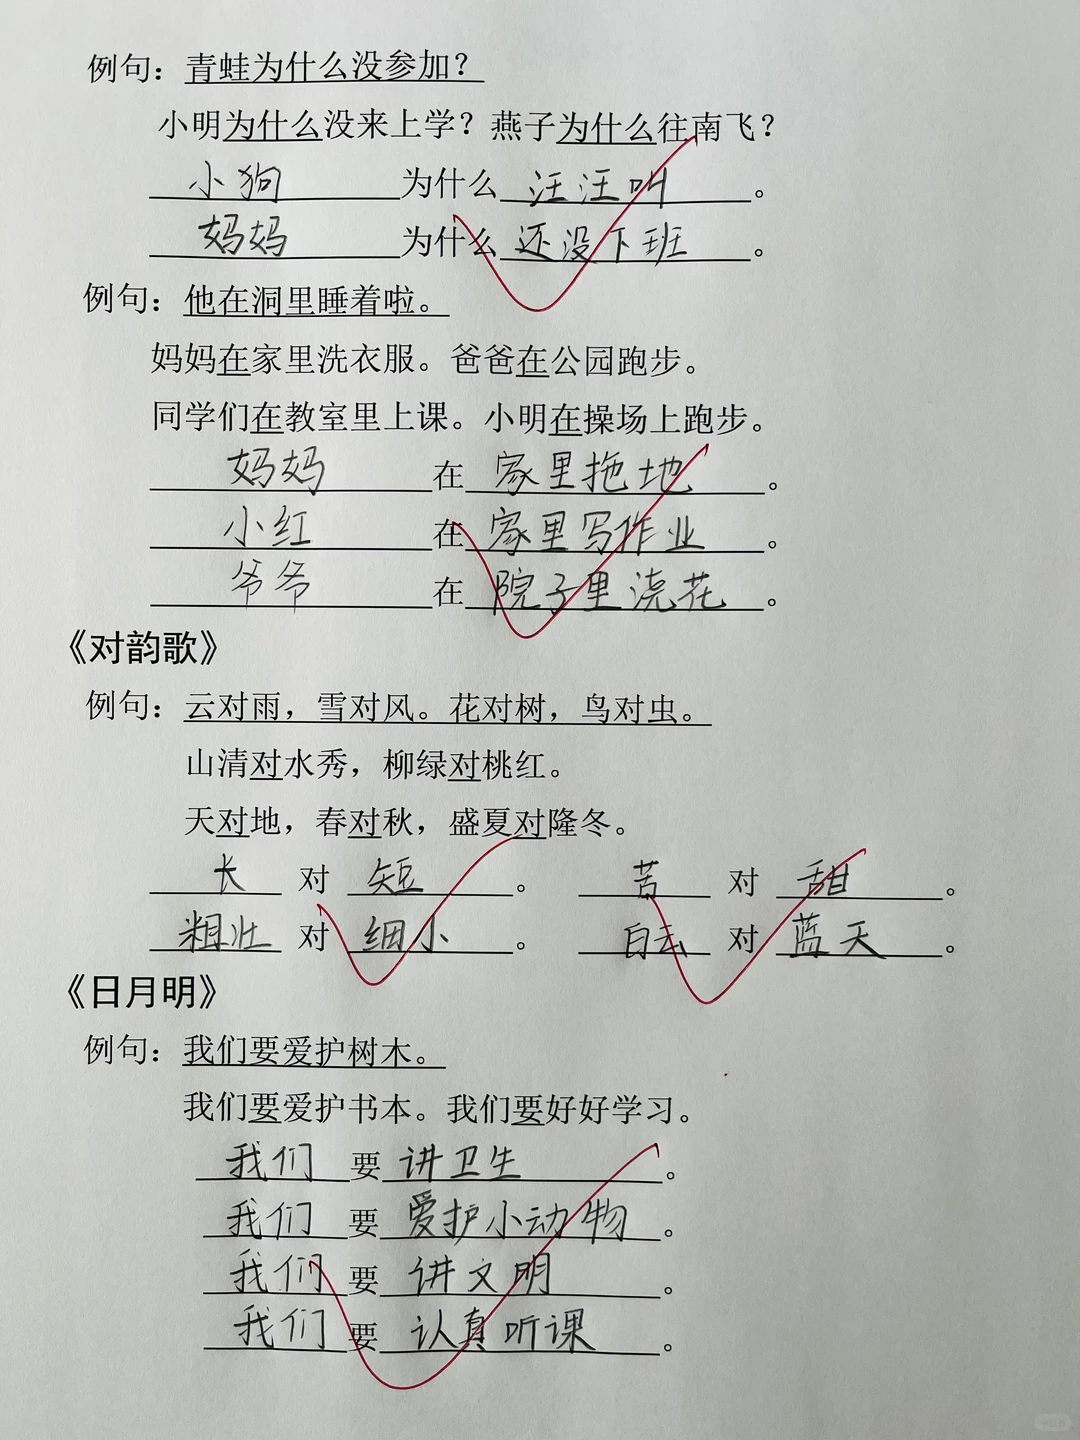 例句：青蛙为什么没参加？
小明为什么没来上学？燕子为什么往南飞？
小狗为什么汪汪叫。
妈妈为什么还没下班。
例句：他在洞里睡着啦。
妈妈在家里洗衣服。爸爸在公园跑步。
同学们在教室里上课。小明在操场上跑步。
妈妈在家里拖地。
小红在家里写作业。
爷爷在院子里浇花。
《对韵歌》
例句：云对雨，雪对风。花对树，鸟对虫。
山清对水秀，柳绿对桃红。
天对地，春对秋，盛夏对隆冬。
长对短。 苦对甜。
粗壮对细小。 白云对蓝天。
《日月明》
例句：我们要爱护树木。
我们要爱护书本。我们要好好学习。
我们要讲卫生。
我们要爱护小动物。
我们要讲文明。
我们要认真听课。